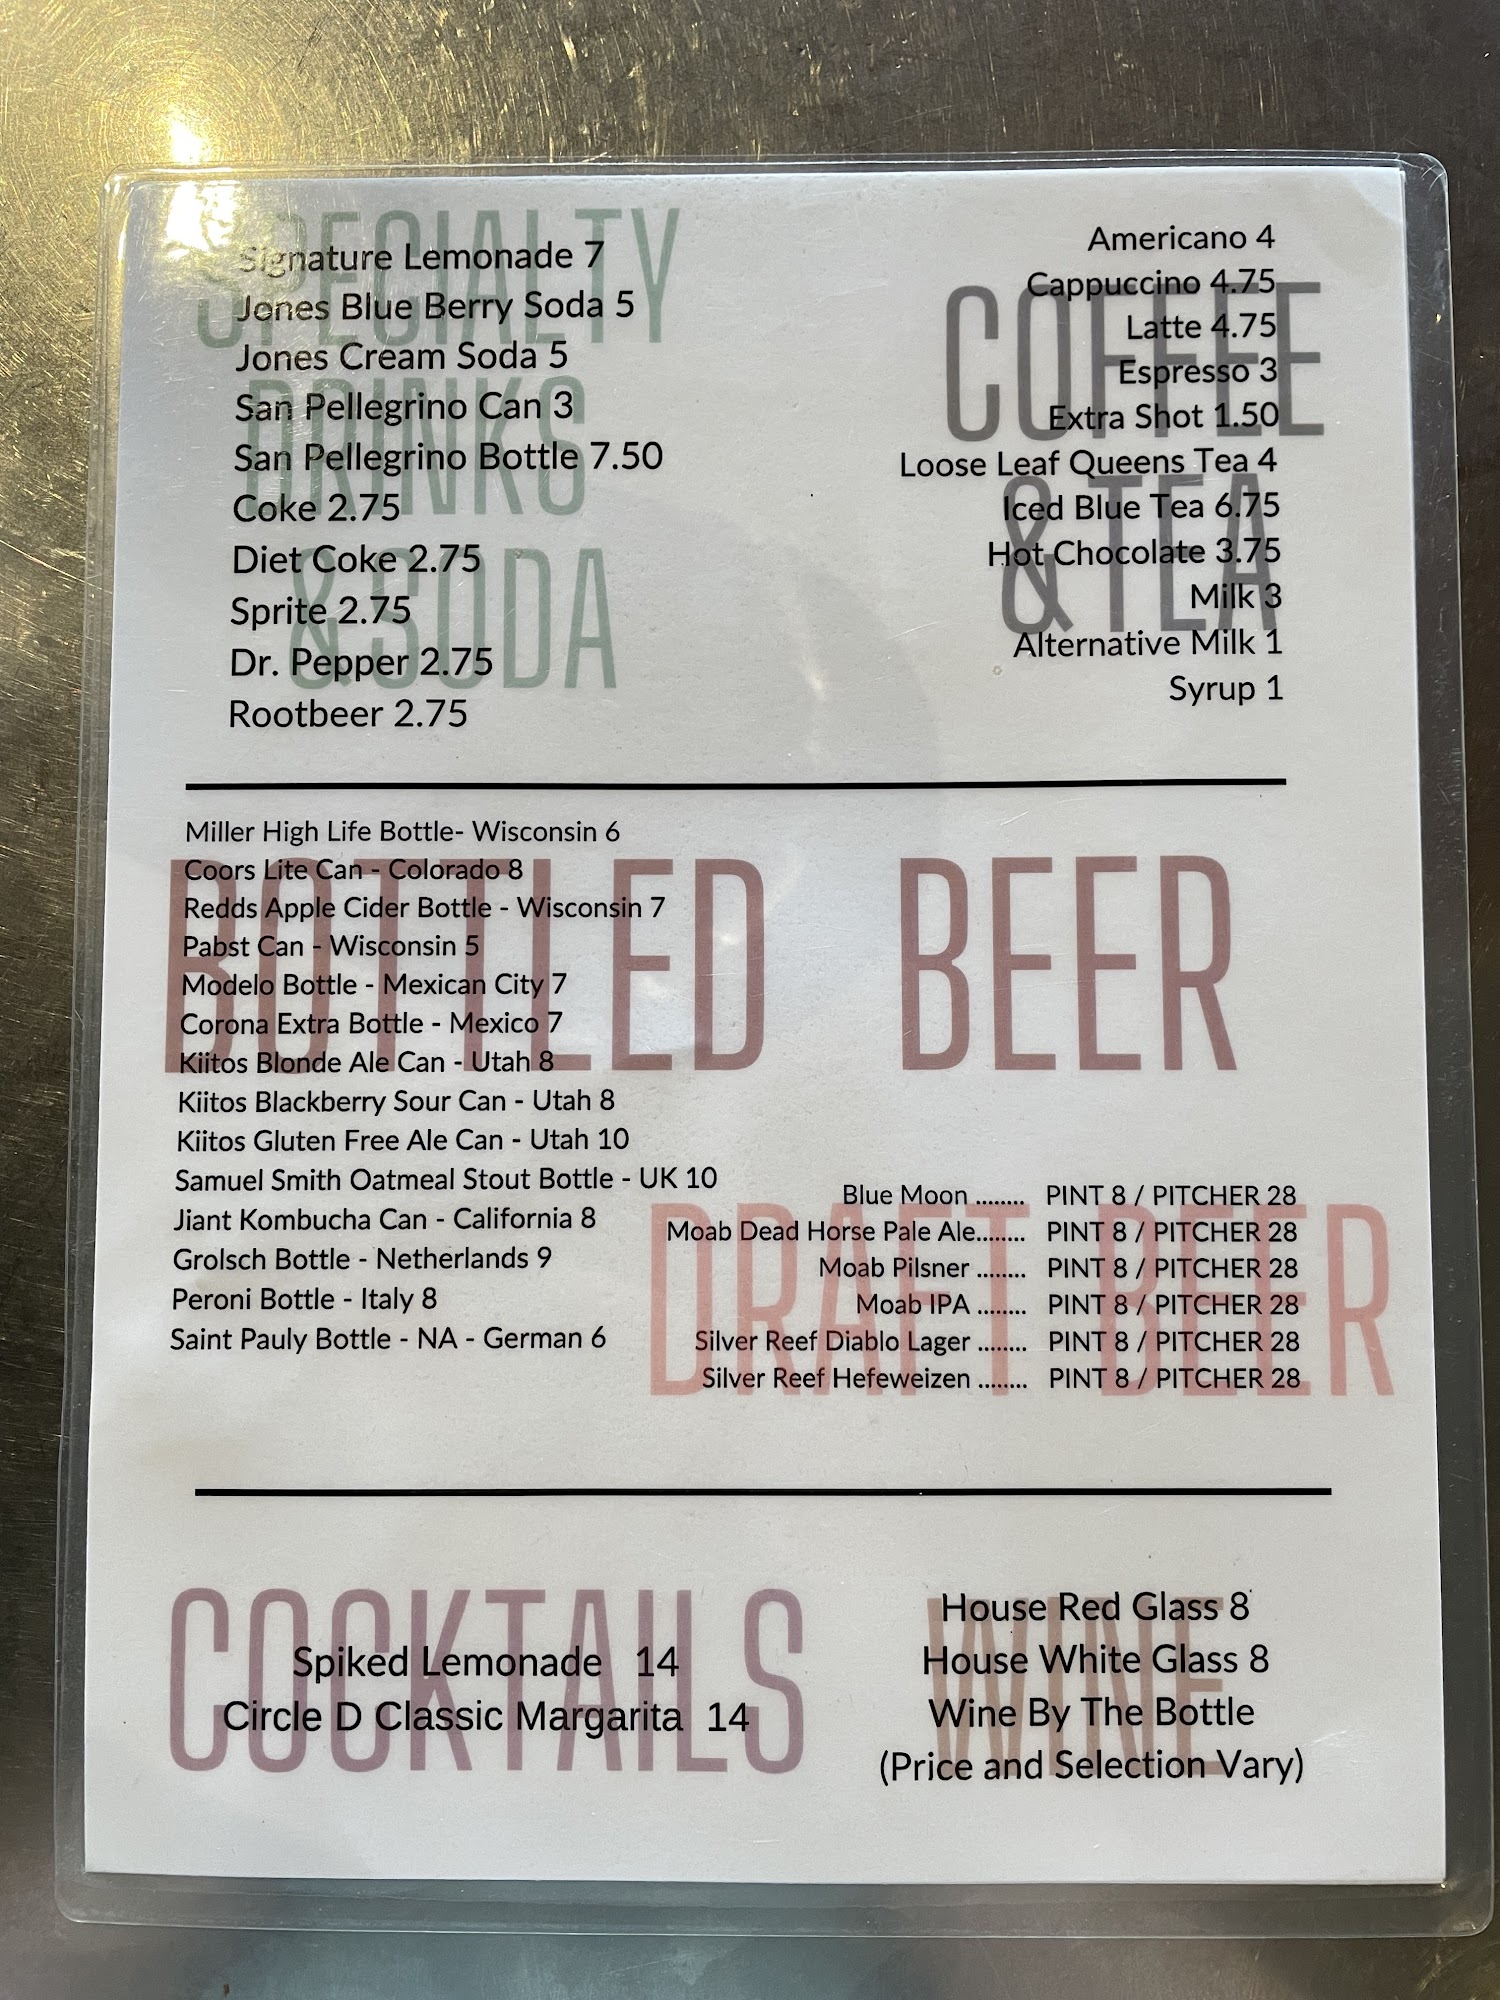 SPECIALTY
DRINKS
& SODA
Signature Lemonade 7
Jones Blue Berry Soda 5
Jones Cream Soda 5
San Pellegrino Can 3
San Pellegrino Bottle 7.50
Coke 2.75
Diet Coke 2.75
Sprite 2.75
Dr. Pepper 2.75
Rootbeer 2.75
COFFEE
& TEA
Americano 4
Cappuccino 4.75
Latte 4.75
Espresso 3
Extra Shot 1.50
Loose Leaf Queens Tea 4
Iced Blue Tea 6.75
Hot Chocolate 3.75
Milk 3
Alternative Milk 1
Syrup 1
BOTTLED BEER
Miller High Life Bottle- Wisconsin 6
Coors Lite Can - Colorado 8
Redds Apple Cider Bottle - Wisconsin 7
Pabst Can - Wisconsin 5
Modelo Bottle - Mexican City 7
Corona Extra Bottle - Mexico 7
Kiitos Blonde Ale Can - Utah 8
Kiitos Blackberry Sour Can - Utah 8
Kiitos Gluten Free Ale Can - Utah 10
Samuel Smith Oatmeal Stout Bottle - UK 10
Jiant Kombucha Can - California 8
Grolsch Bottle - Netherlands 9
Peroni Bottle - Italy 8
Saint Pauly Bottle - NA - German 6
DRAFT BEER
Blue Moon ........ PINT 8 / PITCHER 28
Moab Dead Horse Pale Ale........ PINT 8 / PITCHER 28
Moab Pilsner ........ PINT 8 / PITCHER 28
Moab IPA ........ PINT 8 / PITCHER 28
Silver Reef Diablo Lager ........ PINT 8 / PITCHER 28
Silver Reef Hefeweizen ........ PINT 8 / PITCHER 28
COCKTAILS
Spiked Lemonade 14
Circle D Classic Margarita 14
WINE
House Red Glass 8
House White Glass 8
Wine By The Bottle
(Price and Selection Vary)